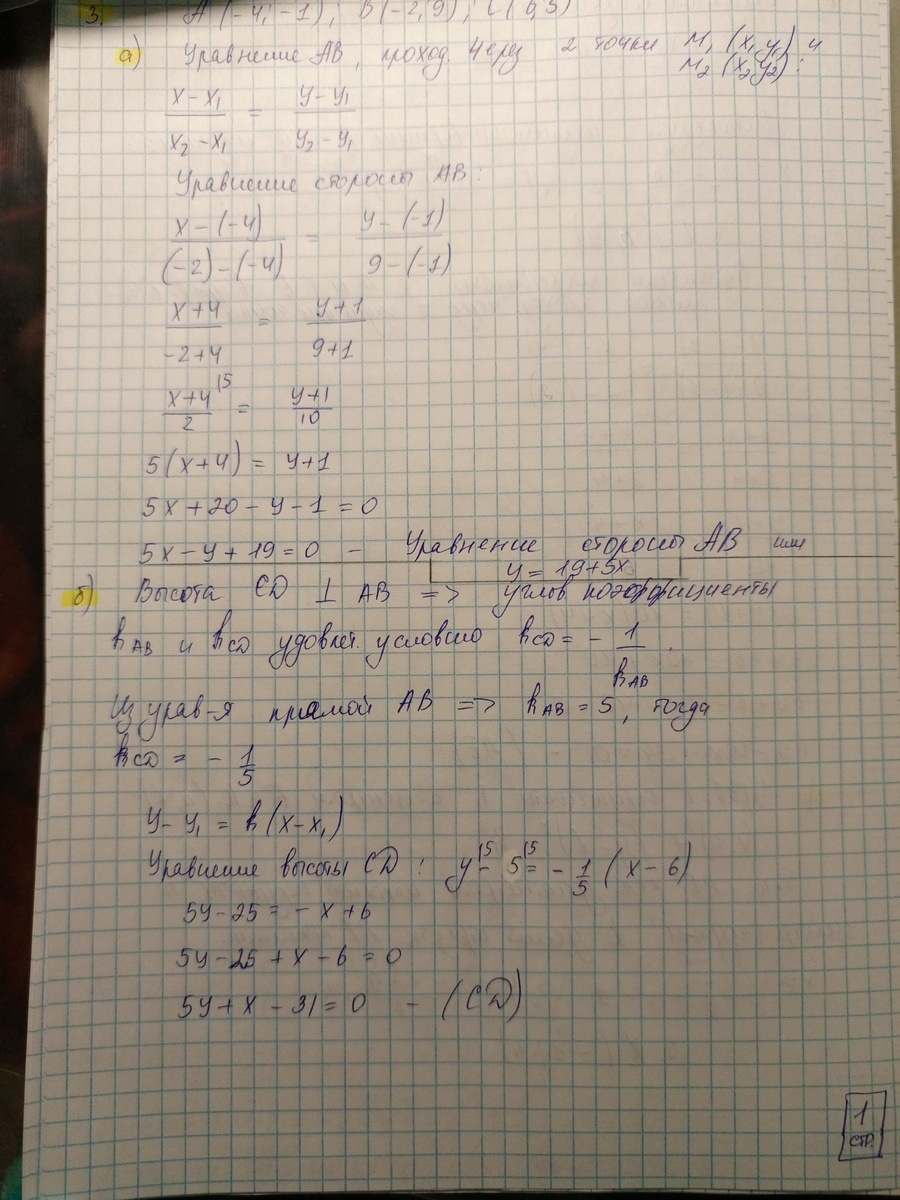 3. A (-4; -1); B (-2; 9); C (6; 5)
а) Уравнение AB, проход. через 2 точки M₁ (x₁ y₁) и
M₂ (x₂ y₂):
(x - x₁)/(x₂ - x₁) = (y - y₁)/(y₂ - y₁)
Уравнение стороны AB:
(x - (-4))/((-2) - (-4)) = (y - (-1))/(9 - (-1))
(x+4)/(-2+4) = (y+1)/(9+1)
(x+4)/2 |5 = (y+1)/10
5(x+4) = y+1
5x + 20 - y - 1 = 0
5x - y + 19 = 0 - Уравнение стороны AB или
y = 19+5x
б) Высота CD ⊥ AB => углов коэффициенты
k_AB и k_CD удовлет. условию k_CD = - 1/k_AB.
Из урав-я прямой AB => k_AB = 5, тогда
k_CD = - 1/5
y - y₁ = k(x - x₁)
Уравнение высоты CD: y |5 - 5 |5 = - 1/5 (x - 6)
5y - 25 = - x + 6
5y - 25 + x - 6 = 0
5y + x - 31 = 0 - (CD)
1
стр.